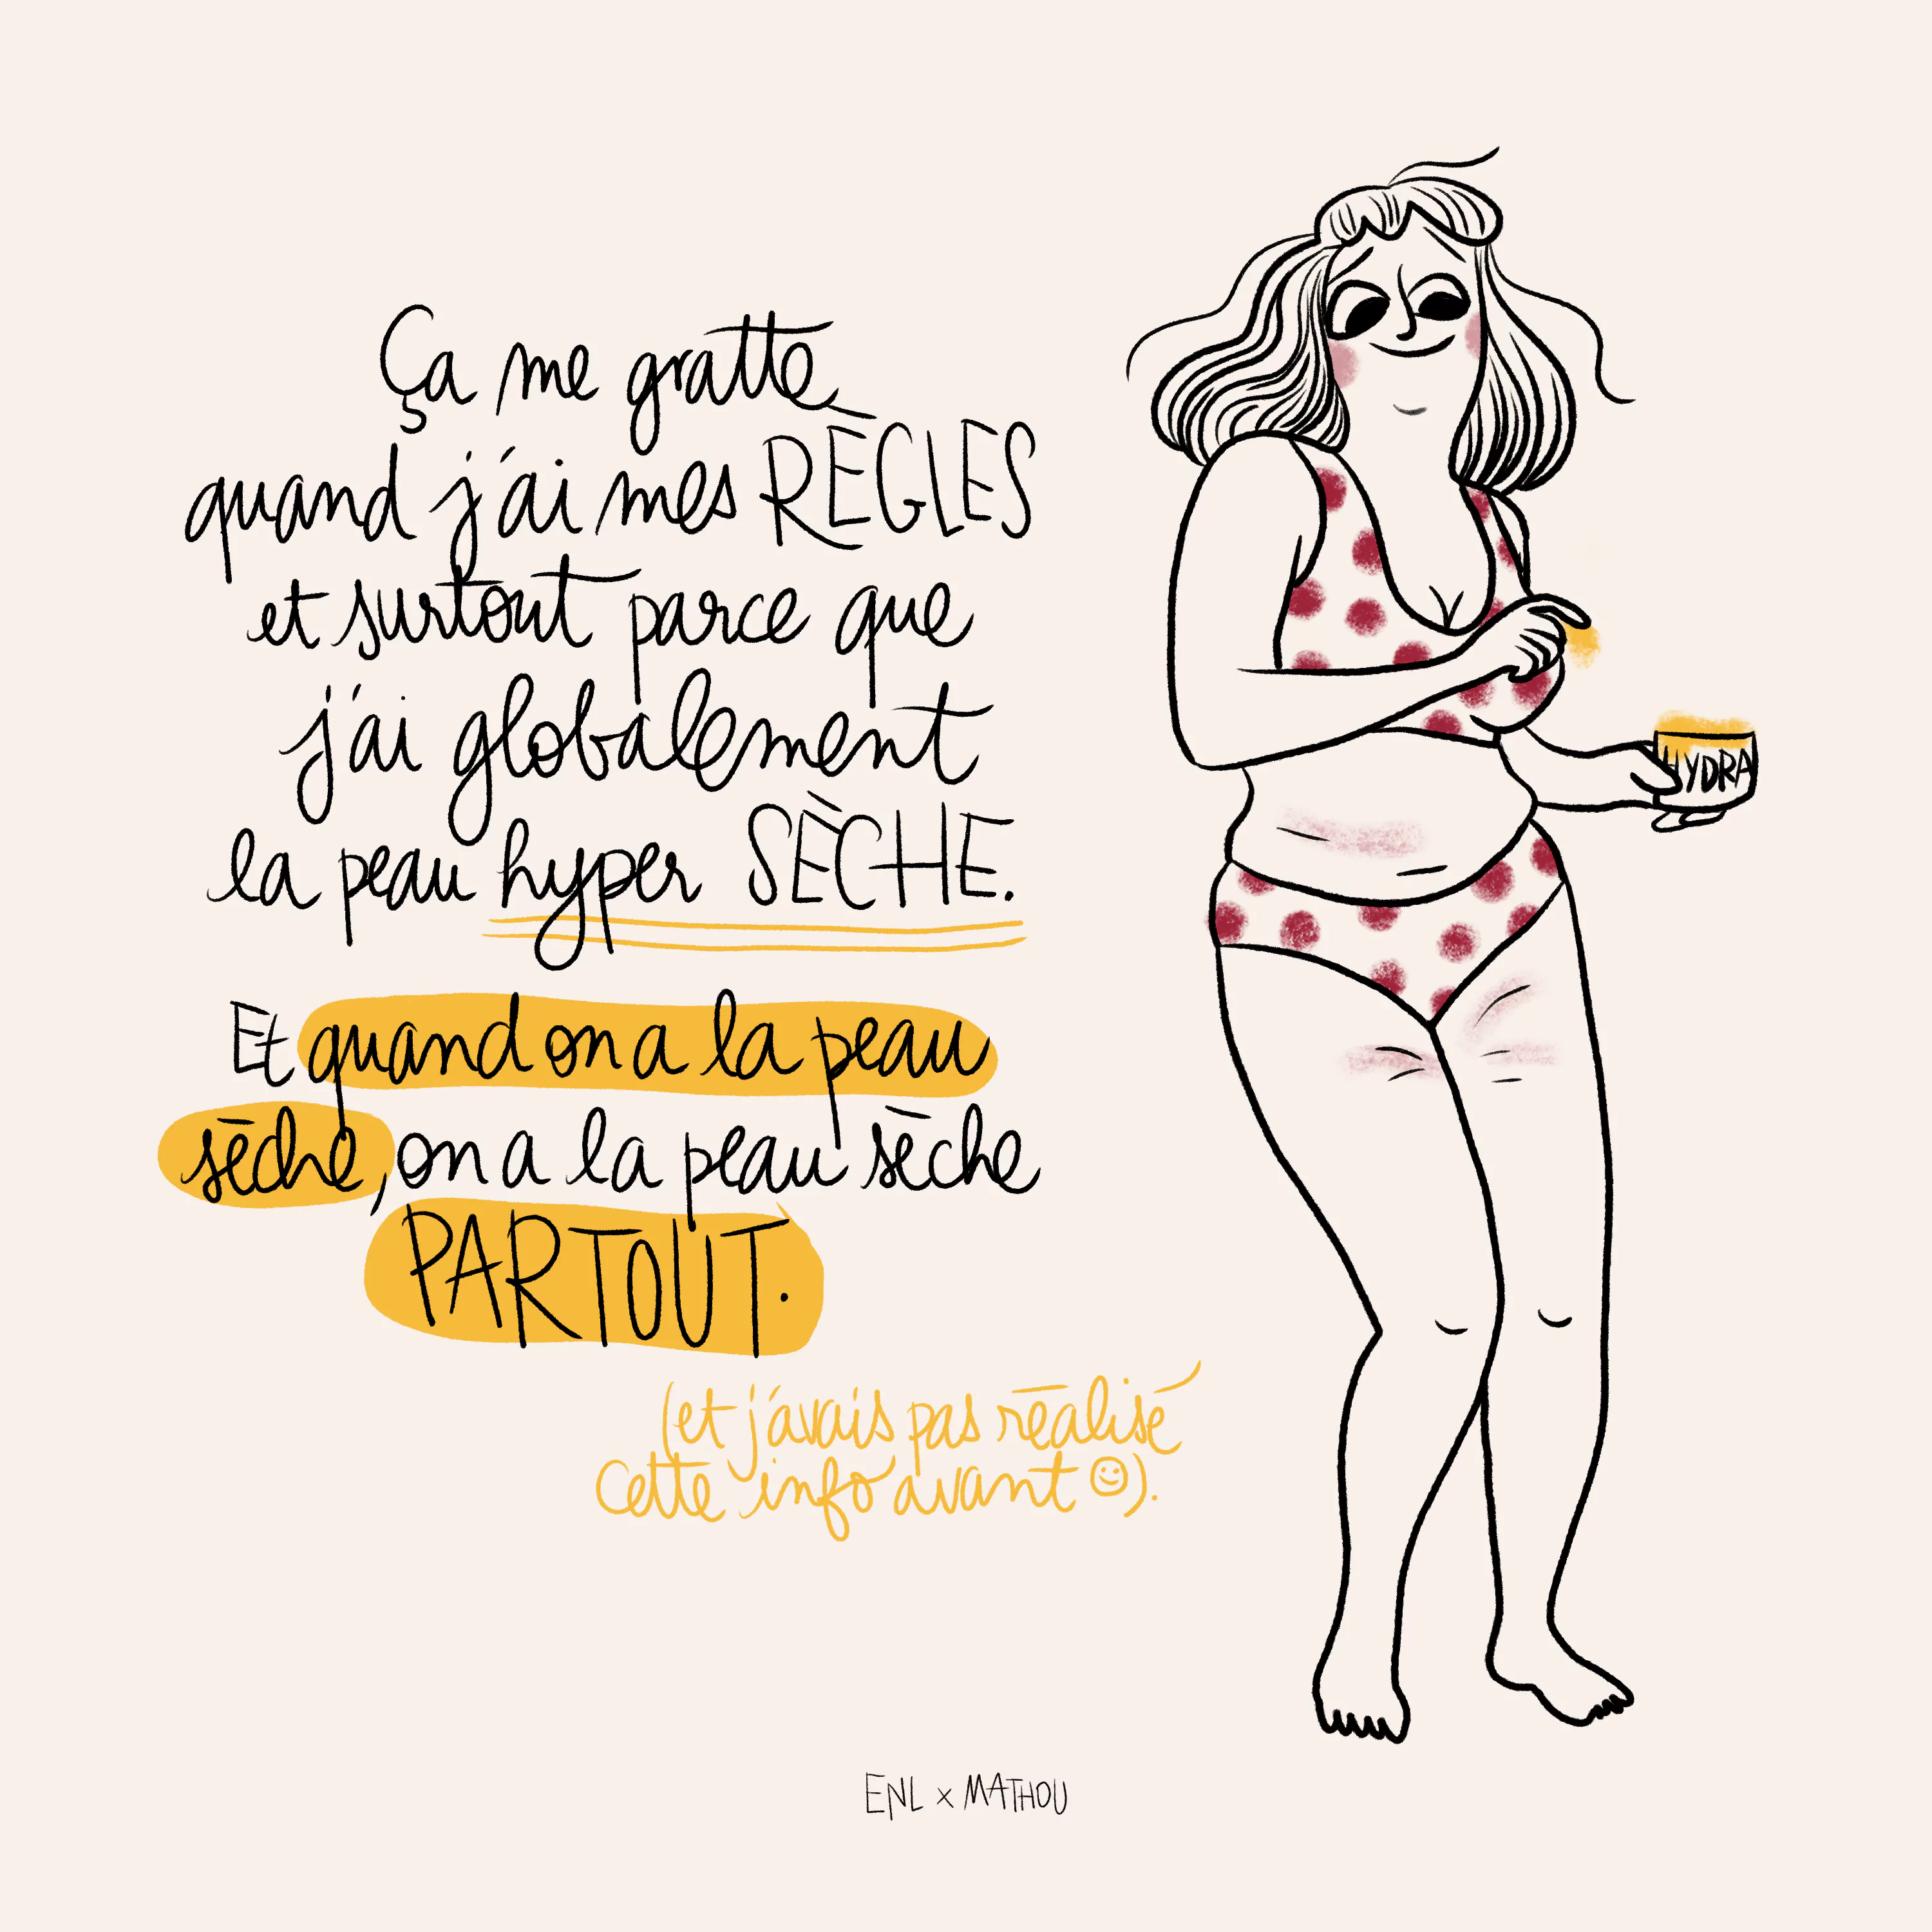 Ça me gratte
quand j'ai mes RÈGLES
et surtout parce que
j'ai globalement
la peau hyper SÈCHE.
Et quand on a la peau
sèche, on a la peau sèche
PARTOUT.
(et j'avais pas réalisé
cette info avant ☺).
HYDRA
ENL x MATHOU